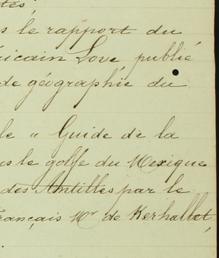 tés,
s le rapport du
ricain Love publié
de géographie du
le " Guide de la
us le golfe du Mexique
des Antilles par le
français Mr de Kerhallet,